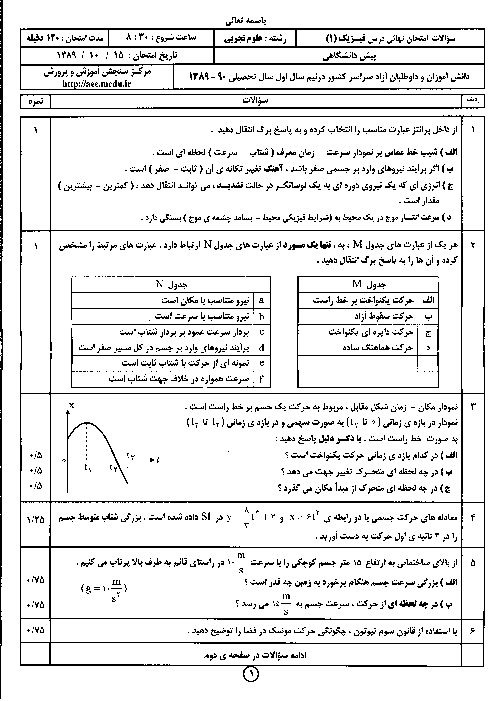 باسمه تعالی
سؤالات امتحان نهائی درس فیزیک (۱) رشته : علوم تجربی ساعت شروع : ۸ : ۳۰ مدت امتحان : ۱۲۰ دقیقه
پیش دانشگاهی تاریخ امتحان : ۱۵ / ۱۰ / ۱۳۸۹
دانش آموزان و داوطلبان آزاد سراسر کشور در نیم سال اول سال تحصیلی ۹۰ - ۱۳۸۹ مرکز سنجش آموزش و پرورش
http://aee.medu.ir
ردیف سؤالات نمره
۱ از داخل پرانتز عبارت مناسب را انتخاب کرده و به پاسخ برگ انتقال دهید . ۱
الف ) شیب خط مماس بر نمودار سرعت - زمان معرف ( شتاب - سرعت ) لحظه ای است .
ب ) اگر برآیند نیروهای وارد بر جسمی صفر باشد ، آهنگ تغییر تکانه ی آن ( ثابت - صفر ) است .
ج ) انرژی ای که یک نیروی دوره ای به یک نوسانگر در حالت تشدید ، می تواند انتقال دهد ، ( کمترین - بیشترین )
مقدار است .
د ) سرعت انتشار موج در یک محیط به (شرایط فیزیکی محیط - بسامد چشمه ی موج ) بستگی دارد .
۲ هر یک از عبارت های جدول M ، به ، تنها یک مورد از عبارت های جدول N ارتباط دارد . عبارت های مرتبط را مشخص ۱
کرده و آن ها را به پاسخ برگ انتقال دهید .
جدول M
الف حرکت یکنواخت بر خط راست
ب حرکت سقوط آزاد
ج حرکت دایره ای یکنواخت
د حرکت هماهنگ ساده
جدول N
a نیرو متناسب با مکان است
b نیرو متناسب با سرعت است
c بردار سرعت عمود بر بردار شتاب است
d برآیند نیروهای وارد بر جسم در کل مسیر صفر است
e نمونه ای از حرکت با شتاب ثابت است
f سرعت همواره در خلاف جهت شتاب است
۳ نمودار مکان - زمان شکل مقابل ، مربوط به حرکت یک جسم بر خط راست است .
نمودار در بازه ی زمانی (۰ تا t₁) به صورت سهمی و در بازه ی زمانی (t₁ تا t₂)
به صورت خط راست است . با ذکر دلیل پاسخ دهید :
الف ) در کدام بازه ی زمانی حرکت یکنواخت است ؟ ۰/۵
ب ) در چه لحظه ای متحرک تغییر جهت می دهد ؟ ۰/۵
ج ) در چه لحظه ای متحرک از مبدأ مکان می گذرد ؟ ۰/۵
x
t₁ t₂ t
۴ معادله های حرکت جسمی با دو رابطه ی x = ۶t² و y = ۸/۳ t³ + ۳ در SI داده شده است . بزرگی شتاب متوسط جسم ۱/۲۵
را در ۳ ثانیه ی اول حرکت به دست آورید .
۵ از بالای ساختمانی به ارتفاع ۱۵ متر جسم کوچکی را با سرعت ۱۰ m/s در راستای قائم به طرف بالا پرتاب می کنیم .
الف ) بزرگی سرعت جسم هنگام برخورد به زمین چه قدر است ؟ (g = ۱۰ m/s²) ۰/۷۵
ب ) در چه لحظه ای از حرکت ، سرعت جسم به ۱۵ m/s می رسد ؟ ۰/۷۵
۶ با استفاده از قانون سوم نیوتون ، چگونگی حرکت موشک در فضا را توضیح دهید . ۰/۷۵
ادامه سؤالات در صفحه ی دوم
۱